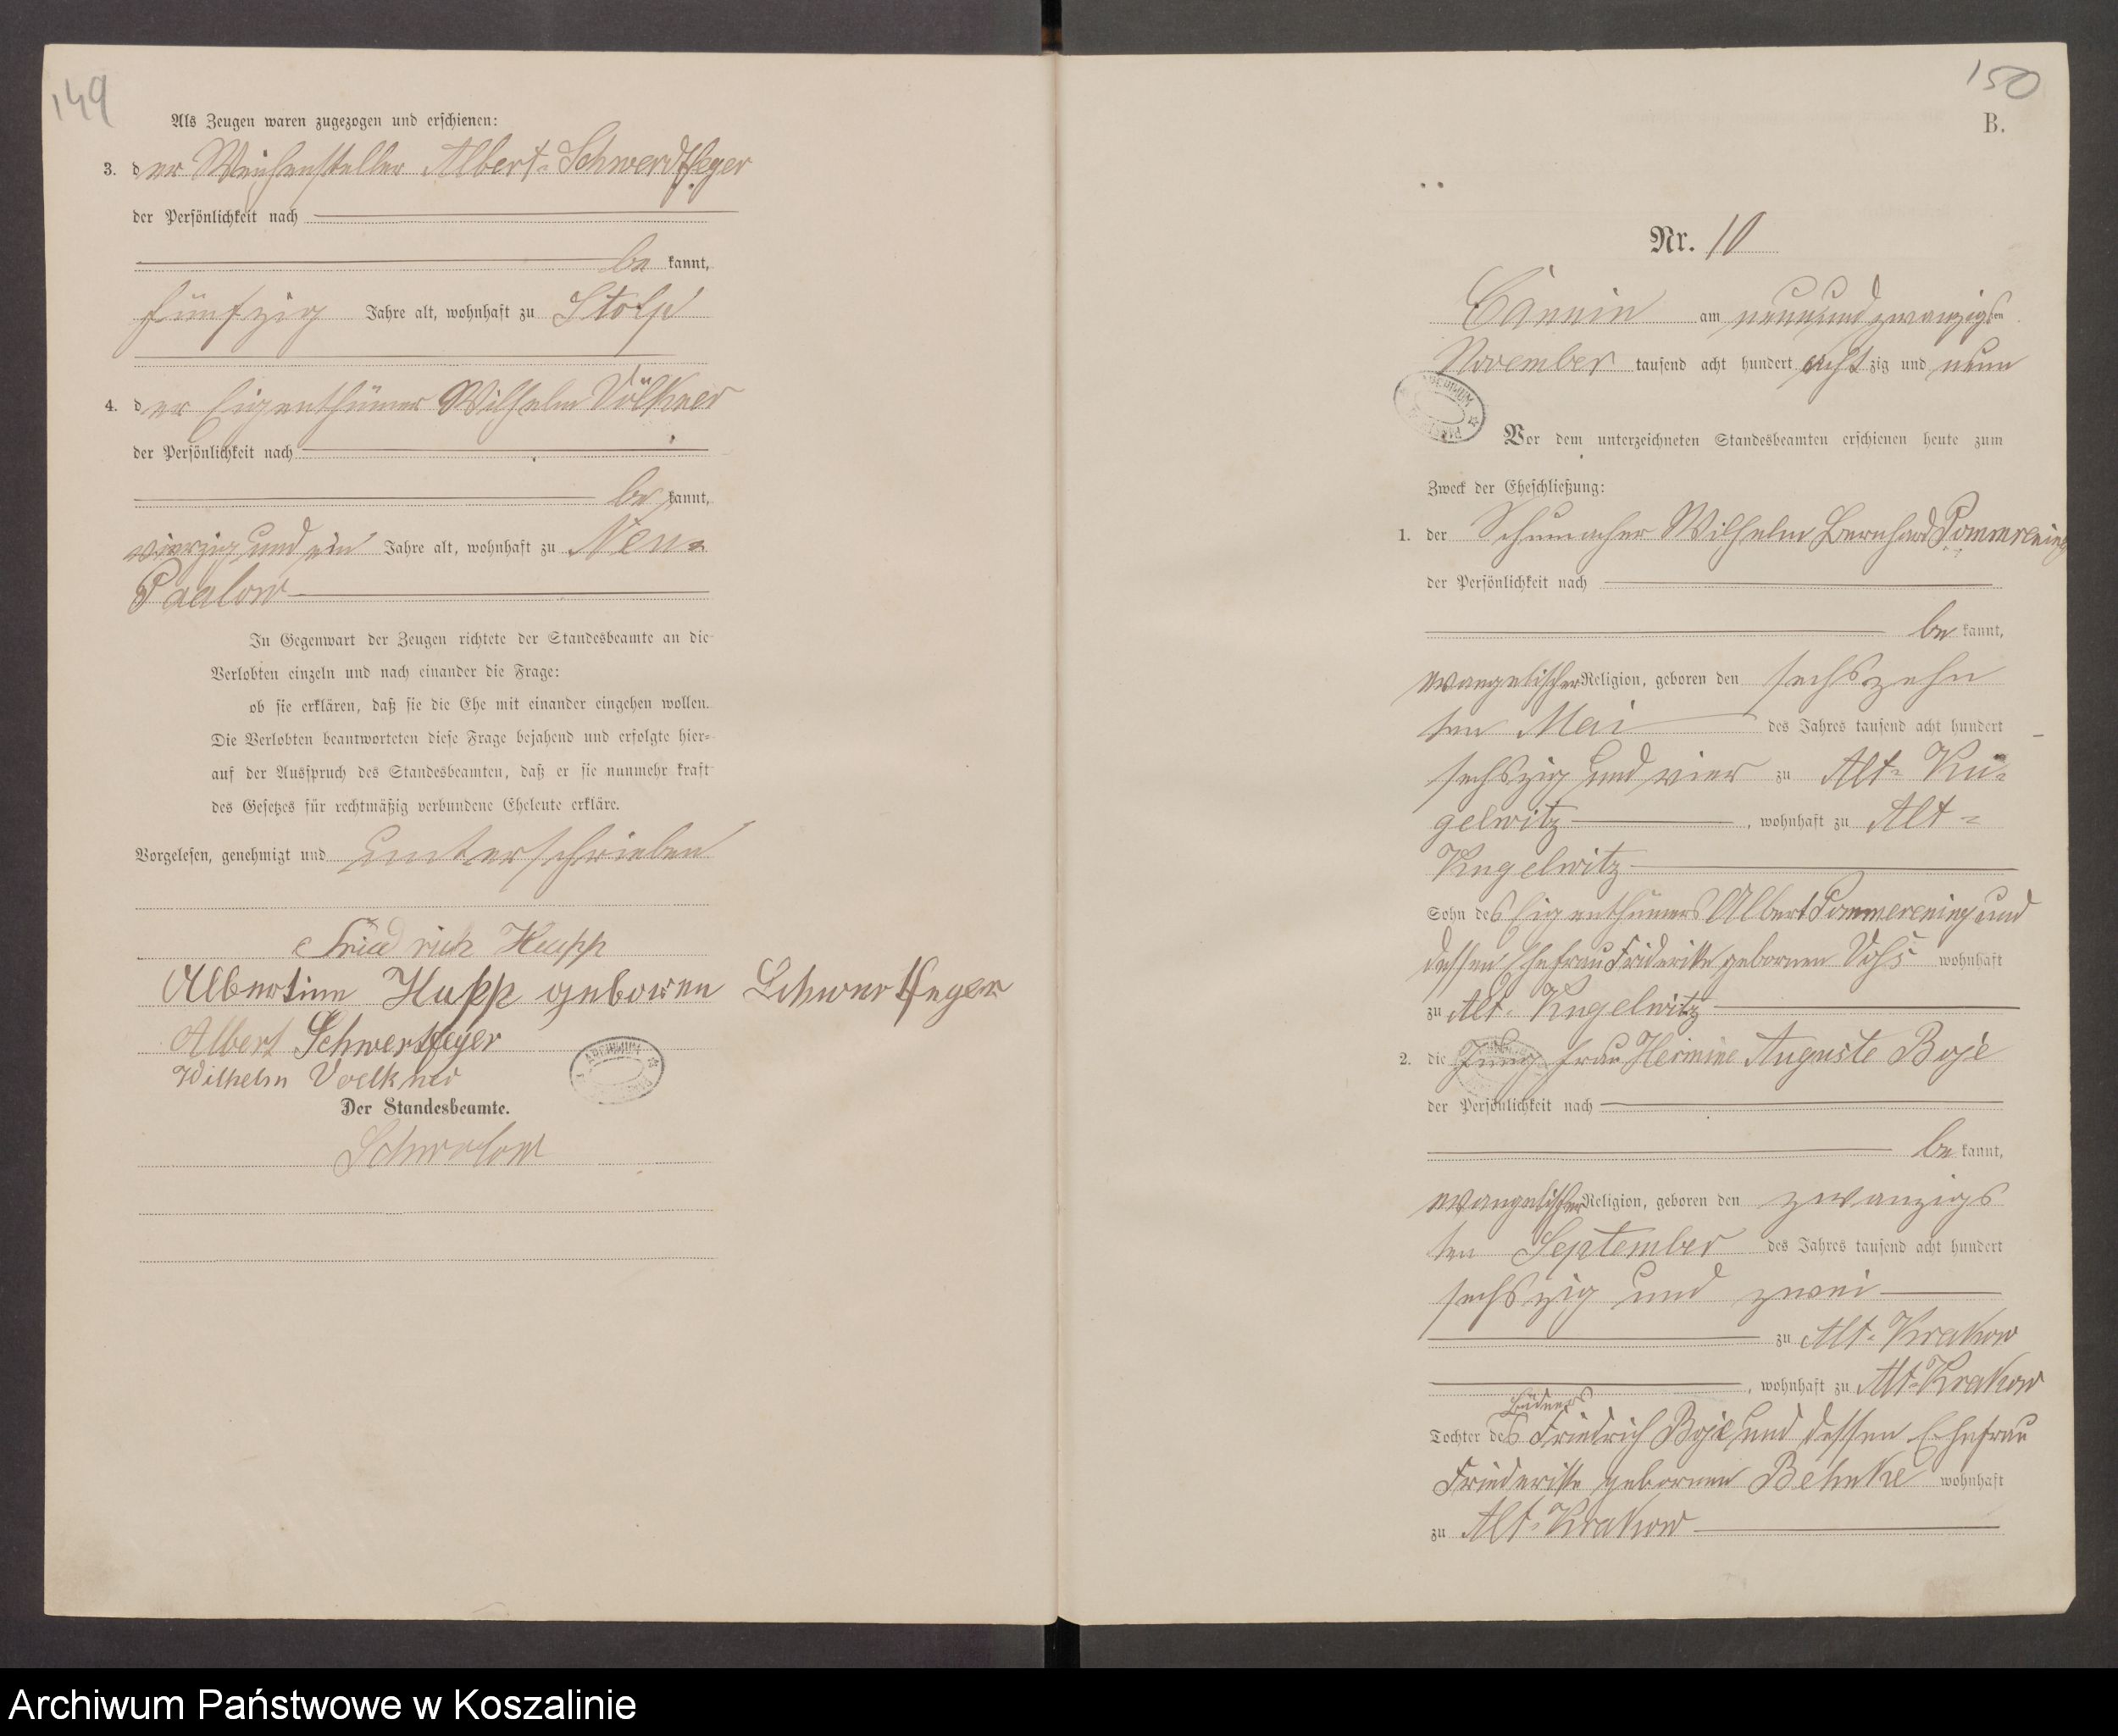 149
Als Zeugen waren zugezogen und erschienen:
3. der Weichensteller Albert Schwerdtfeger
der Persönlichkeit nach
be kannt,
fünfzig Jahre alt, wohnhaft zu Stolp
4. der Eigenthümer Wilhelm Völkner
der Persönlichkeit nach
be kannt,
vierzig und ein Jahre alt, wohnhaft zu Neu-
Paalow
In Gegenwart der Zeugen richtete der Standesbeamte an die
Verlobten einzeln und nach einander die Frage:
ob sie erklären, daß sie die Ehe mit einander eingehen wollen.
Die Verlobten beantworteten diese Frage bejahend und erfolgte hier-
auf der Ausspruch des Standesbeamten, daß er sie nunmehr kraft
des Gesetzes für rechtmäßig verbundene Eheleute erkläre.
Vorgelesen, genehmigt und unterschrieben
Friedrich Hupp
Albertine Hupp geboren Schwertfeger
Albert Schwertfeger
Wilhelm Voelkner
Der Standesbeamte.
150
B.
Nr. 10
Cannin am neunundzwanzigsten
November tausend acht hundert achtzig und neun
Vor dem unterzeichneten Standesbeamten erschienen heute zum
Zweck der Eheschließung:
1. der Schumacher Wilhelm Bernhard Pommerening
der Persönlichkeit nach
be kannt,
evangelischer Religion, geboren den sechszehn
ten Mai des Jahres tausend acht hundert
sechszig und vier zu Alt-Ku-
gelwitz, wohnhaft zu Alt-
Kugelwitz
Sohn des Eigenthümers Albert Pommerening und
dessen Ehefrau Friderike gebornen Voß wohnhaft
zu Alt-Kugelwitz
2. die Jungfrau Hermine Auguste Boje
der Persönlichkeit nach
be kannt,
evangelischer Religion, geboren den zwanzigs
ten September des Jahres tausend acht hundert
sechszig und zwei
zu Alt-Krakow
, wohnhaft zu Alt-Krakow
Büdners
Tochter des Friedrich Boje und dessen Ehefrau
Friederike gebornen Behnke wohnhaft
zu Alt-Krakow
Archiwum Państwowe w Koszalinie